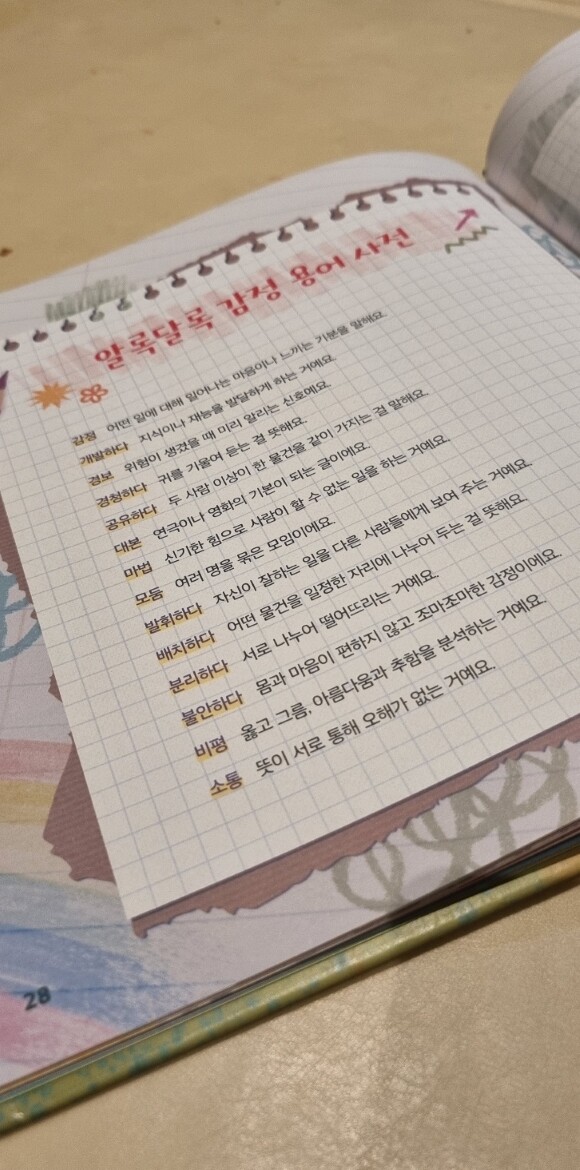 알록달록 감정 용어 사전
감정 어떤 일에 대해 일어나는 마음이나 느끼는 기분을 말해요.
개발하다 지식이나 재능을 발달하게 하는 거예요.
경보 위험이 생겼을 때 미리 알리는 신호예요.
경청하다 귀를 기울여 듣는 걸 뜻해요.
공유하다 두 사람 이상이 한 물건을 같이 가지는 걸 말해요.
대본 연극이나 영화의 기본이 되는 글이에요.
마법 신기한 힘으로 사람이 할 수 없는 일을 하는 거예요.
모둠 여러 명을 묶은 모임이에요.
발휘하다 자신이 잘하는 일을 다른 사람들에게 보여 주는 거예요.
배치하다 어떤 물건을 일정한 자리에 나누어 두는 걸 뜻해요.
분리하다 서로 나누어 떨어뜨리는 거예요.
불안하다 몸과 마음이 편하지 않고 조마조마한 감정이에요.
비평 옳고 그름, 아름다움과 추함을 분석하는 거예요.
소통 뜻이 서로 통해 오해가 없는 거예요.
28